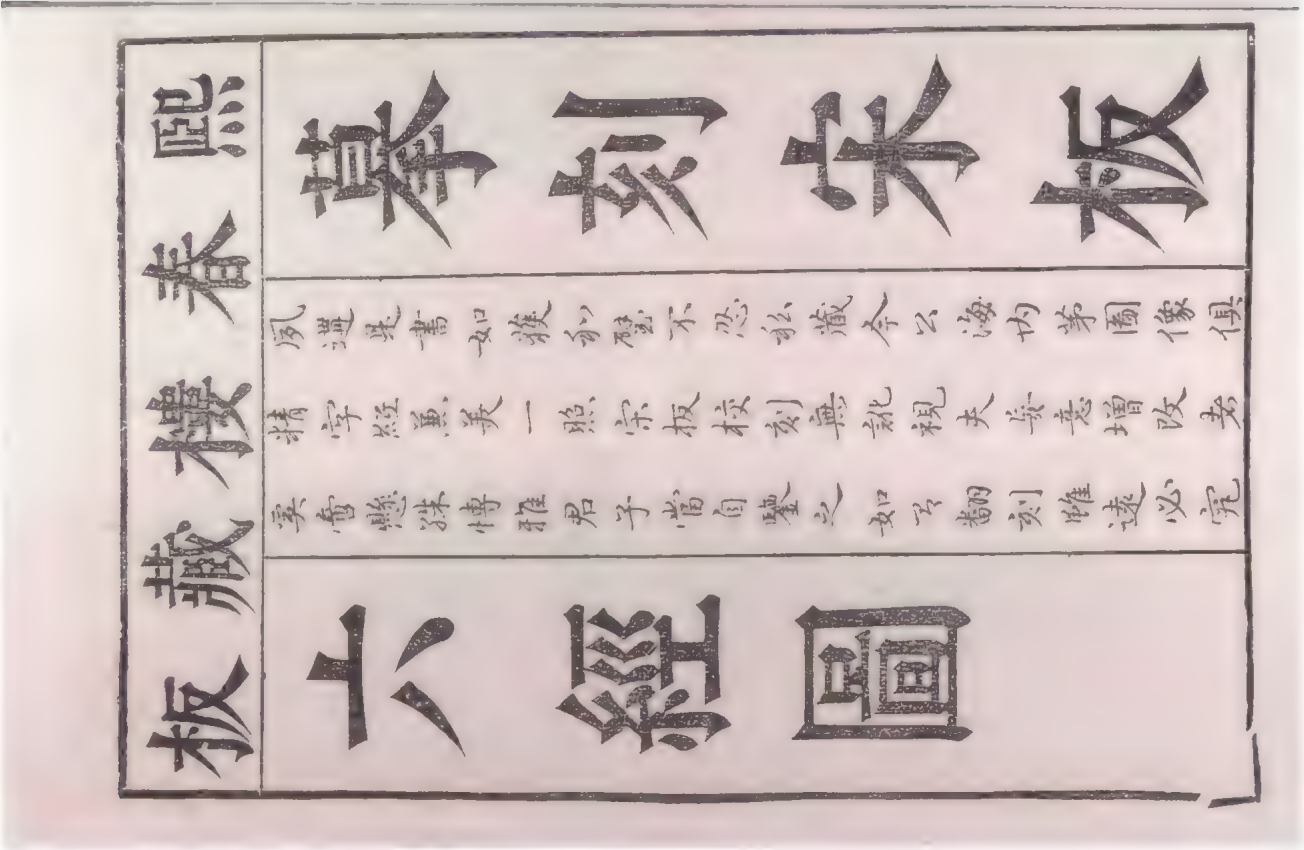 熙春樓藏板
摹刻宋板
夙遘是書如獲和璧不忍私藏今公海內苐圖像俱
精字紙兼美一照宋板校刻無訛視夫妄意增改者
奚啻懸殊博雅君子當自鑒之如有翻刻雖遠必究
六經圖